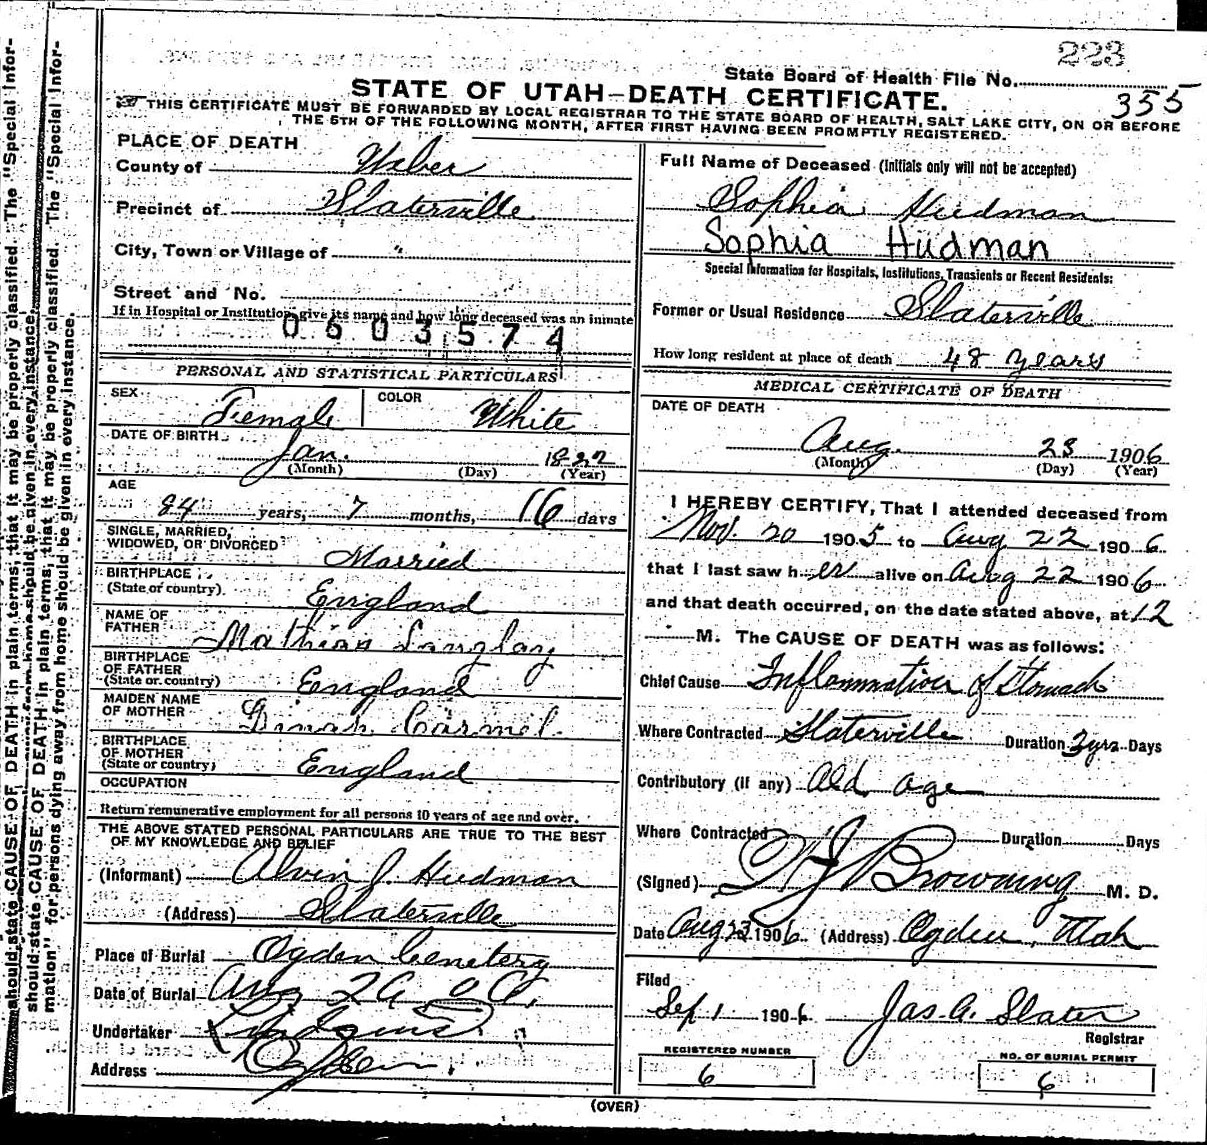 223
State Board of Health File No.
355
STATE OF UTAH—DEATH CERTIFICATE.
THIS CERTIFICATE MUST BE FORWARDED BY LOCAL REGISTRAR TO THE STATE BOARD OF HEALTH, SALT LAKE CITY, ON OR BEFORE
THE 5TH OF THE FOLLOWING MONTH, AFTER FIRST HAVING BEEN PROMPTLY REGISTERED.
PLACE OF DEATH
County of Weber
Precinct of Slaterville
City, Town or Village of "
Street and No.
If in Hospital or Institution, give its name and how long deceased was an inmate
0603574
PERSONAL AND STATISTICAL PARTICULARS
SEX Female COLOR White
DATE OF BIRTH Jan. 1822
(Month) (Day) (Year)
AGE
84 years, 7 months, 16 days
SINGLE, MARRIED,
WIDOWED, OR DIVORCED Married
BIRTHPLACE
(State or country) England
NAME OF
FATHER Mathias Langlay
BIRTHPLACE
OF FATHER
(State or country) England
MAIDEN NAME
OF MOTHER Dinah Carmel
BIRTHPLACE
OF MOTHER
(State or country) England
OCCUPATION
Return remunerative employment for all persons 10 years of age and over.
THE ABOVE STATED PERSONAL PARTICULARS ARE TRUE TO THE BEST
OF MY KNOWLEDGE AND BELIEF
(Informant) Alvin J. Hudman
(Address) Slaterville
Place of Burial Ogden Cemetery
Date of Burial Aug 26 06
Undertaker
Address Ogden
Full Name of Deceased (Initials only will not be accepted)
Sophia Hudman
Sophia Hudman
Special Information for Hospitals, Institutions, Transients or Recent Residents:
Former or Usual Residence Slaterville
How long resident at place of death 48 years
MEDICAL CERTIFICATE OF DEATH
DATE OF DEATH
Aug. 23 1906
(Month) (Day) (Year)
I HEREBY CERTIFY, That I attended deceased from
Nov. 20 1905 to Aug 22 1906
that I last saw her alive on Aug 22 1906
and that death occurred, on the date stated above, at 12
M. The CAUSE OF DEATH was as follows:
Chief Cause Inflammation of Stomach
Where Contracted Slaterville Duration 3 yrs Days
Contributory (if any) Old age
Where Contracted Duration Days
(Signed) Browning M. D.
Date Aug 23 1906 (Address) Ogden, Utah
Filed
Sep 1 1906 Jas. A. Slater
Registrar
REGISTERED NUMBER
6
NO. OF BURIAL PERMIT
6
(OVER)
should state CAUSE OF DEATH in plain terms, that it may be properly classified. The "Special Infor-
should state CAUSE OF DEATH in plain terms, that it may be properly classified. The "Special Infor-
mation" for persons dying away from home should be given in every instance.